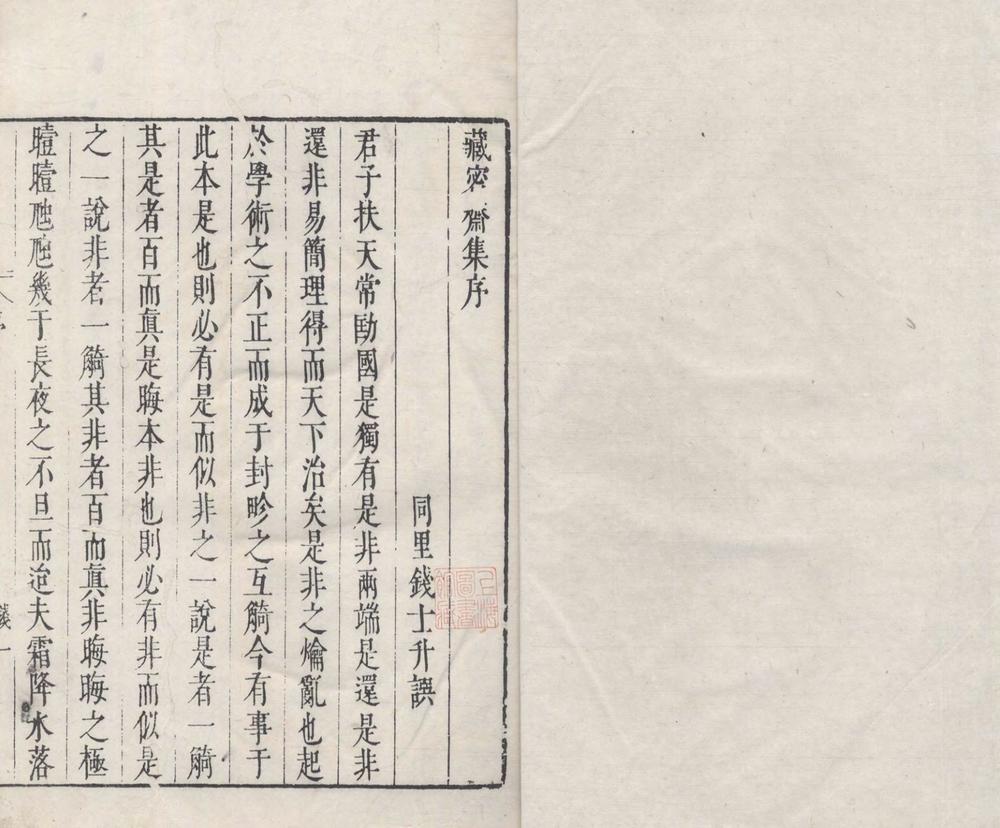 藏密齋集序
同里錢士升譔
君子扶天常劻國是獨有是非兩端是還是非
還非易簡理得而天下治矣是非之爚亂也起
於學術之不正而成于封畛之互觭今有事于
此本是也則必有是而似非之一說是者一觭
其是者百而眞是晦本非也則必有非而似是
之一說非者一觭其非者百而眞非晦晦之極
曀曀虺虺幾于長夜之不旦而迨夫霜降水落